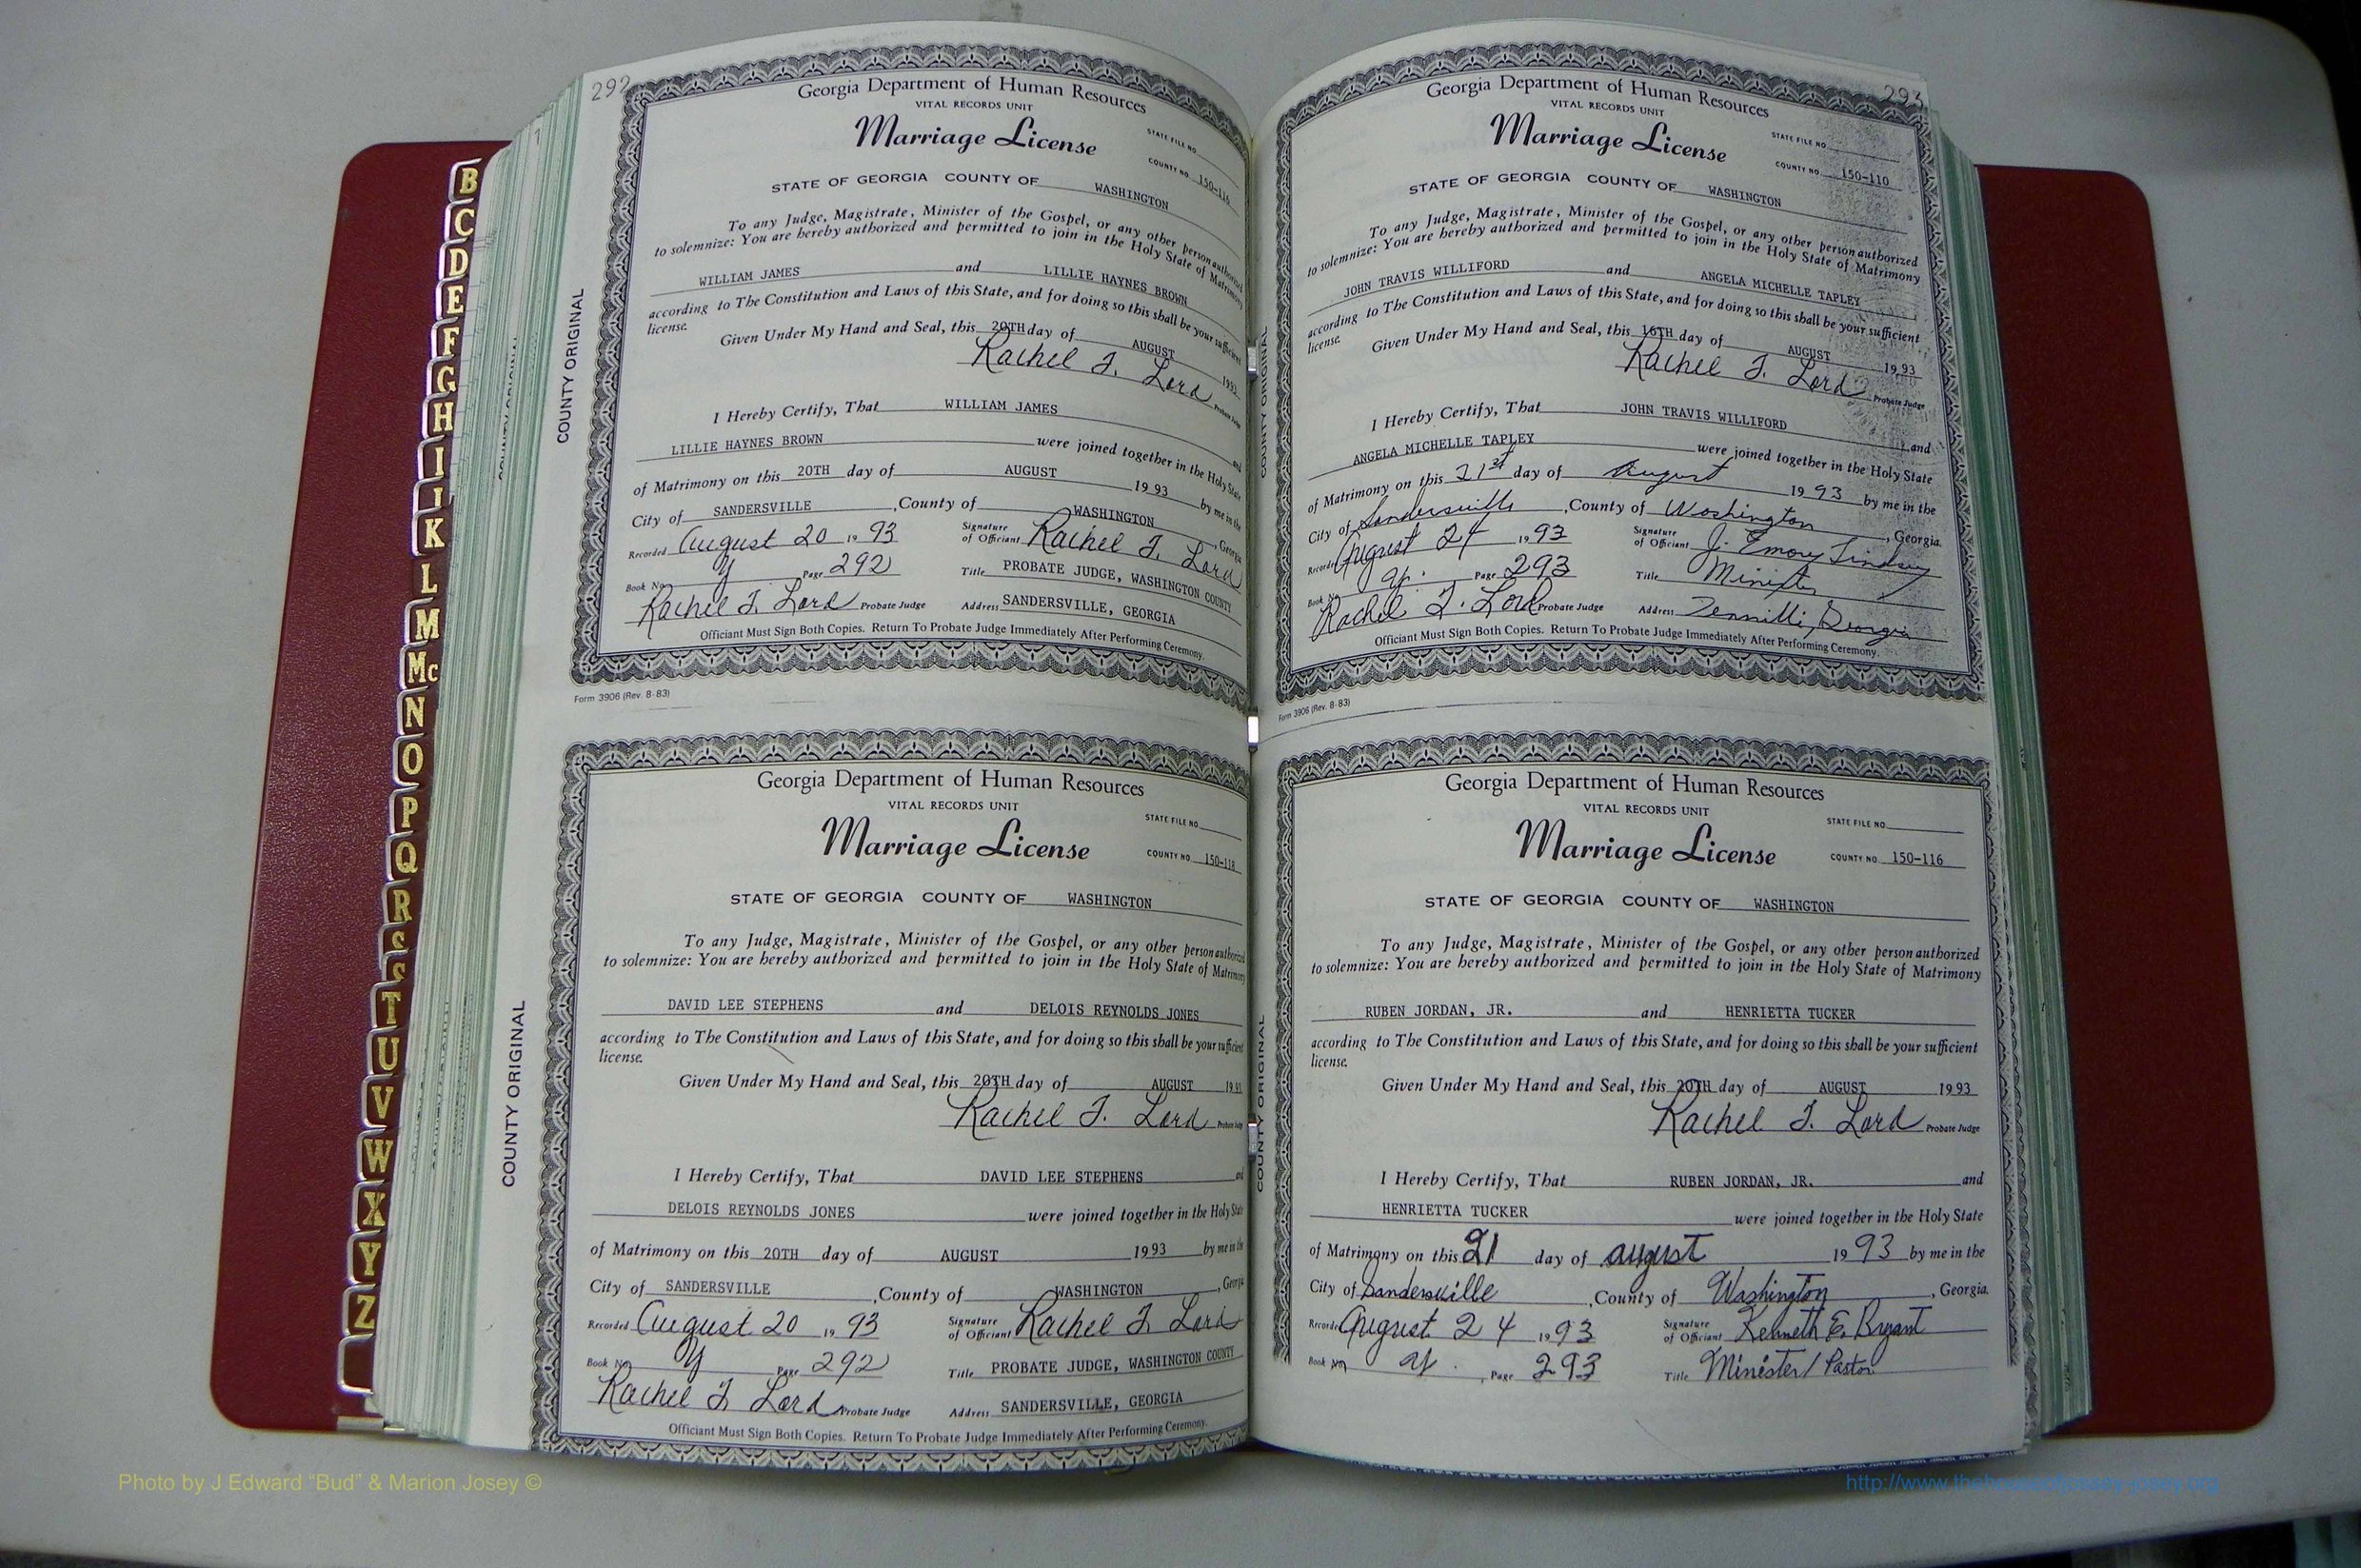 B
C
D
E
F
G
H
I
J
K
L
M
Mc
N
O
P
Q
R
S
S
T
U
V
W
X
Y
Z
292
COUNTY ORIGINAL
Georgia Department of Human Resources
VITAL RECORDS UNIT
Marriage License
STATE FILE NO.
COUNTY NO.
STATE OF GEORGIA COUNTY OF WASHINGTON
To any Judge, Magistrate, Minister of the Gospel, or any other person authorized
to solemnize: You are hereby authorized and permitted to join in the Holy State of Matrimony
WILLIAM JAMES and LILLIE HAYNES BROWN
according to The Constitution and Laws of this State, and for doing so this shall be your sufficient
license.
Given Under My Hand and Seal, this 20TH day of AUGUST 1993
Rachel T. Lord Probate Judge
I Hereby Certify, That WILLIAM JAMES and
LILLIE HAYNES BROWN were joined together in the Holy State
of Matrimony on this 20TH day of AUGUST 1993 by me in the
City of SANDERSVILLE, County of WASHINGTON, Georgia
Recorded August 20 1993 Signature of Officiant Rachel T. Lord
Book No. Y Page 292 Title PROBATE JUDGE, WASHINGTON COUNTY
Rachel T. Lord Probate Judge Address SANDERSVILLE, GEORGIA
Officiant Must Sign Both Copies. Return To Probate Judge Immediately After Performing Ceremony.
Form 3906 (Rev. 8-83)
COUNTY ORIGINAL
Georgia Department of Human Resources
VITAL RECORDS UNIT
Marriage License
STATE FILE NO.
COUNTY NO. 150-118
STATE OF GEORGIA COUNTY OF WASHINGTON
To any Judge, Magistrate, Minister of the Gospel, or any other person authorized
to solemnize: You are hereby authorized and permitted to join in the Holy State of Matrimony
DAVID LEE STEPHENS and DELOIS REYNOLDS JONES
according to The Constitution and Laws of this State, and for doing so this shall be your sufficient
license.
Given Under My Hand and Seal, this 20TH day of AUGUST 1993
Rachel T. Lord Probate Judge
I Hereby Certify, That DAVID LEE STEPHENS and
DELOIS REYNOLDS JONES were joined together in the Holy State
of Matrimony on this 20TH day of AUGUST 1993 by me in the
City of SANDERSVILLE, County of WASHINGTON, Georgia
Recorded August 20 1993 Signature of Officiant Rachel T. Lord
Book No. Y Page 292 Title PROBATE JUDGE, WASHINGTON COUNTY
Rachel T. Lord Probate Judge Address SANDERSVILLE, GEORGIA
Officiant Must Sign Both Copies. Return To Probate Judge Immediately After Performing Ceremony.
293
COUNTY ORIGINAL
Georgia Department of Human Resources
VITAL RECORDS UNIT
Marriage License
STATE FILE NO.
COUNTY NO. 150-110
STATE OF GEORGIA COUNTY OF WASHINGTON
To any Judge, Magistrate, Minister of the Gospel, or any other person authorized
to solemnize: You are hereby authorized and permitted to join in the Holy State of Matrimony
JOHN TRAVIS WILLIFORD and ANGELA MICHELLE TAPLEY
according to The Constitution and Laws of this State, and for doing so this shall be your sufficient
license.
Given Under My Hand and Seal, this 16TH day of AUGUST 1993
Rachel T. Lord Probate Judge
I Hereby Certify, That JOHN TRAVIS WILLIFORD and
ANGELA MICHELLE TAPLEY were joined together in the Holy State
of Matrimony on this 21st day of August 1993 by me in the
City of Sandersville, County of Washington, Georgia.
Recorded August 24 1993 Signature of Officiant J. Emory Lindsey
Book No. Y. Page 293 Title Minister
Rachel T. Lord Probate Judge Address Tennille, Georgia
Officiant Must Sign Both Copies. Return To Probate Judge Immediately After Performing Ceremony.
Form 3906 (Rev. 8-83)
COUNTY ORIGINAL
Georgia Department of Human Resources
VITAL RECORDS UNIT
Marriage License
STATE FILE NO.
COUNTY NO. 150-116
STATE OF GEORGIA COUNTY OF WASHINGTON
To any Judge, Magistrate, Minister of the Gospel, or any other person authorized
to solemnize: You are hereby authorized and permitted to join in the Holy State of Matrimony
RUBEN JORDAN, JR. and HENRIETTA TUCKER
according to The Constitution and Laws of this State, and for doing so this shall be your sufficient
license.
Given Under My Hand and Seal, this 20TH day of AUGUST 1993
Rachel T. Lord Probate Judge
I Hereby Certify, That RUBEN JORDAN, JR. and
HENRIETTA TUCKER were joined together in the Holy State
of Matrimony on this 21 day of august 1993 by me in the
City of Sandersville, County of Washington, Georgia.
Recorded August 24 1993 Signature of Officiant Kenneth E. Bryant
Book No. Y. Page 293 Title Minister/Pastor
Photo by J Edward “Bud” & Marion Josey ©
http://www.thehouseofjossey-josey.org